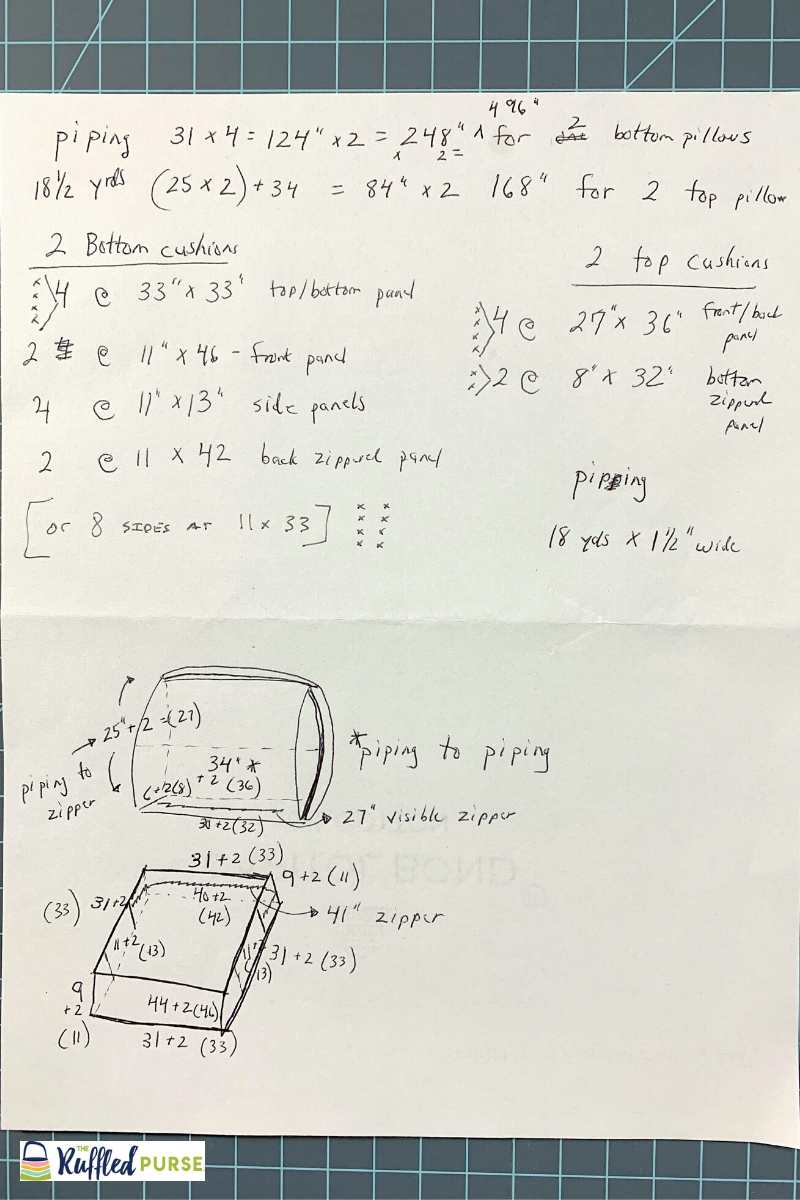 496"
piping 31 x 4 = 124" x 2 = 248" ^ for 2 bottom pillows
x 2 =
18 1/2 yrds (25 x 2) + 34 = 84" x 2 168" for 2 top pillow
2 Bottom cushions
4 @ 33" x 33" top/bottom panel
2 @ 11" x 46 - front panel
4 @ 11" x 13" side panels
2 @ 11 x 42 back zippered panel
[or 8 SIDES AT 11 x 33] x x x x x x x x
2 top cushions
x x x x 4 @ 27" x 36" front/back panel
x x 2 @ 8" x 32" bottom zippered panel
piping
18 yds x 1 1/2" wide
25" + 2 = (27)
piping to zipper
34" *
+2 (36)
6+2(8)
30+2(32)
*piping to piping
27" visible zipper
31+2 (33)
9+2 (11)
40+2 (42)
41" zipper
(33) 31+2
11+2 (13)
11+2 (13)
31+2 (33)
9 +2 (11)
44+2(46)
31+2 (33)
THE Ruffled PURSE